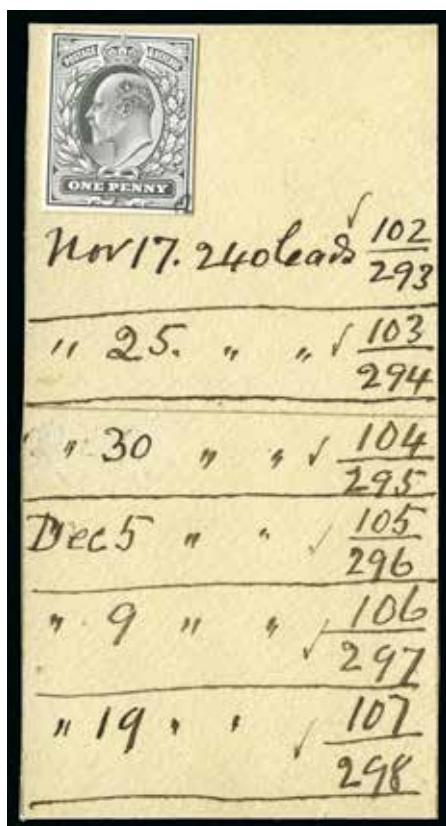 POSTAGE & REVENUE
ONE PENNY
Nov 17. 240 leads ✓ 102/293
" 25. " " ✓ 103/294
" 30 " " ✓ 104/295
Dec 5 " " ✓ 105/296
" 9 " " ✓ 106/297
" 19 " " ✓ 107/298